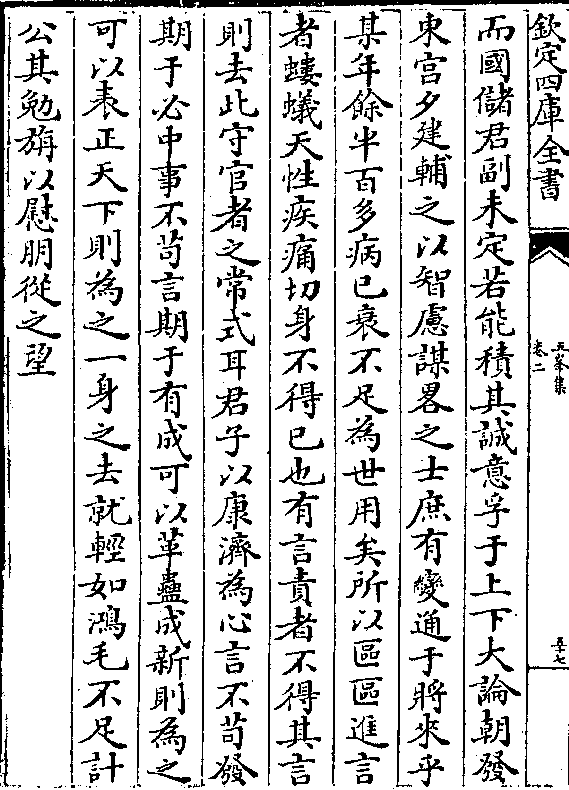 欽定四庫全書
五峯集
卷二
五十七
而國儲君副未定若能積其誠意孚于上下大論朝發
東宮夕建輔之以智慮謀畧之士庶有變通于將來乎
某年餘半百多病已衰不足為世用矣所以區區進言
者螻蟻天性疾痛切身不得已也有言責者不得其言
則去此守官者之常式耳君子以康濟為心言不苟發
期于必中事不苟言期于有成可以革蠱成新則為之
可以表正天下則為之一身之去就輕如鴻毛不足計
公其勉旃以慰朋從之望